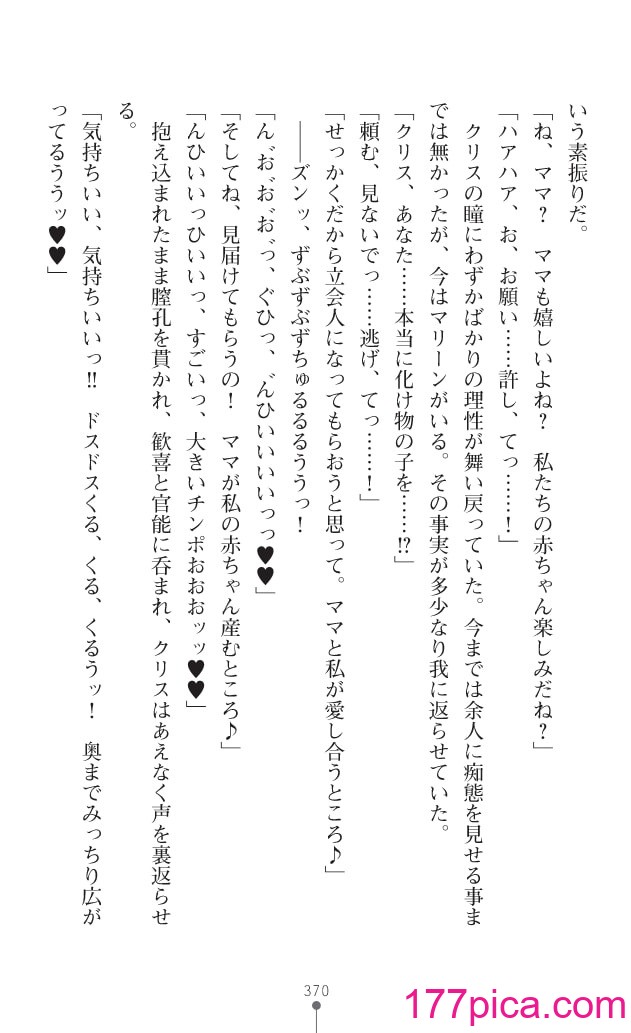 いう素振りだ。
「ね、ママ？　ママも嬉しいよね？　私たちの赤ちゃん楽しみだね？」
「ハアハア、お、お願い……許し、てっ……！」
　クリスの瞳にわずかばかりの理性が舞い戻っていた。今までは余人に痴態を見せる事ま
では無かったが、今はマリーンがいる。その事実が多少なり我に返らせていた。
「クリス、あなた……本当に化け物の子を……!?」
「頼む、見ないでっ……逃げ、てっ……！」
「せっかくだから立会人になってもらおうと思って。ママと私が愛し合うところ♪」
　――ズンッ、ずぶずぶずちゅるるるううっ！
「ん゛お゛お゛お゛っ、ぐひっ、゛んひいいいいっっ♥♥」
「そしてね、見届けてもらうの！　ママが私の赤ちゃん産むところ♪」
「んひいいっひいいっ、すごいっ、大きいチンポおおおッッ♥♥」
　抱え込まれたまま膣孔を貫かれ、歓喜と官能に呑まれ、クリスはあえなく声を裏返らせ
る。
「気持ちいい、気持ちいいっ!!　ドスドスくる、くる、くるうッ！　奥までみっちり広が
ってるううッ♥♥」
370
177pica.com